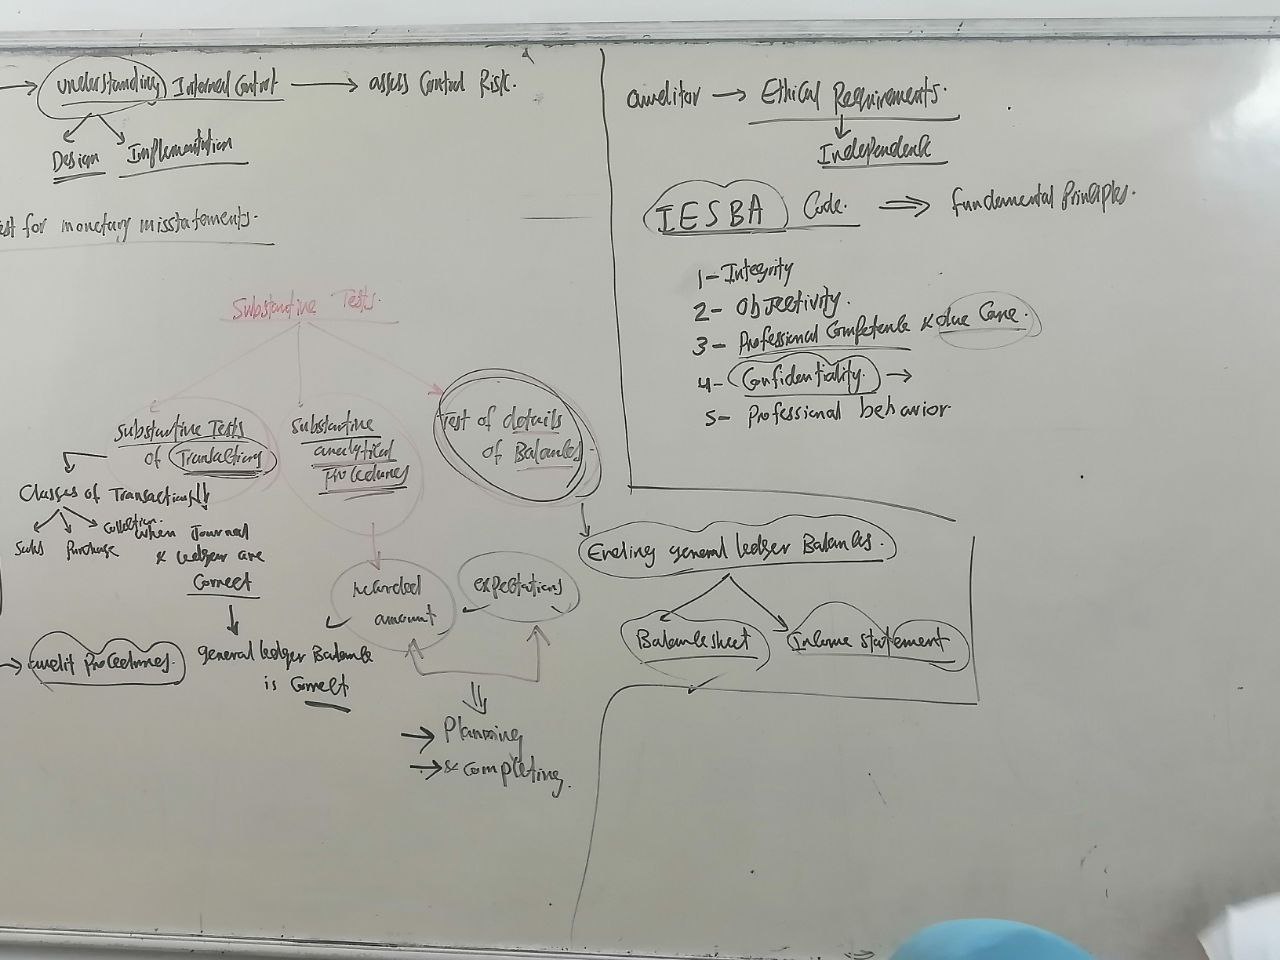 understanding Internal Control → assess Control Risk.
Design Implementation
for monetary misstatements.
Substantive Tests.
Substantive Tests
of Transactions
Classes of Transactions
Sales Purchase Collection
When Journal
& Ledger are
Correct
general ledger Balance
is Correct
audit Procedures.
Substantive
analytical
Procedures
recorded
amount
expectations
→ Planning
→ & Completing.
test of details
of Balances
Ending general ledger Balances.
Balance sheet Income statement
auditor → Ethical Requirements.
Independence
IESBA Code. ⇒ fundamental Principles.
1- Integrity
2- Objectivity.
3- Professional Competence & due Care.
4- Confidentiality. →
5- Professional behavior